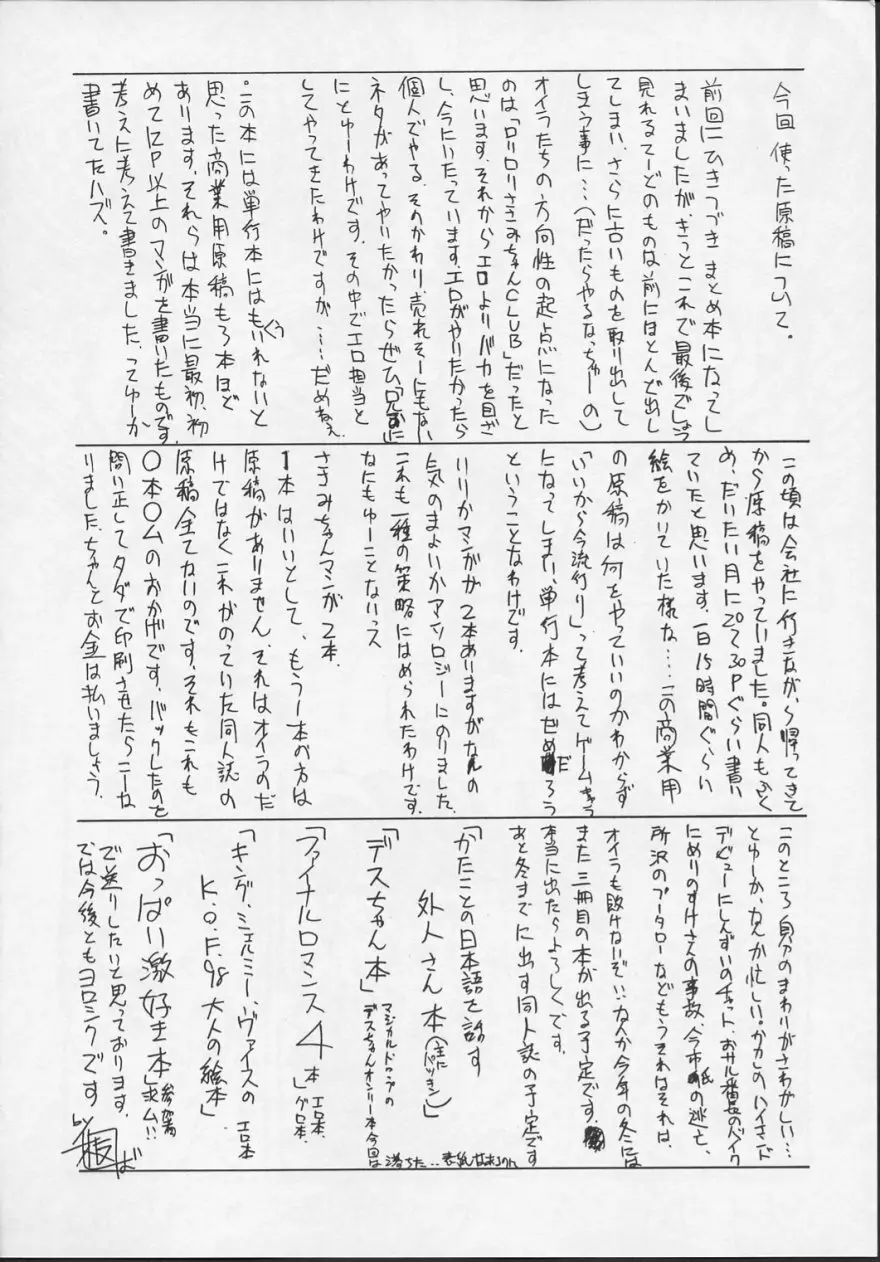 今回使った原稿について。
前回にひきつづきまとめ本になってし
まいましたが、きっとこれで最後でしょう
見れるてーどのものは前にほとんど出し
てしまい、さらに古いものを取り出して
しまう事に…(だったらやるなっちゅーの)
オイラたちの方向性の起点になった
のは「ロリロリさきみちゃんCLUB」だったと
思います。それからエロよりバカを目ざ
し、今にいたっています。エロがやりたかったら
個人でやる、そのかわり、売れそーにもない
ネタがあってやりたかったらぜひ
にとゆーわけです。その中でエロ担当と
してやってきたわけですが……だめねぇ
。この本には単行本にはもぅいれないと
思った商業用原稿も3本ほど
あります。それらは本当に最初、初
めて12P以上のマンガを書いたものです。
考えに考えて書きました、ってゆーか
書いてたハズ。
この頃は会社に行きながら、帰ってきて
から原稿をやっていました。同人もふく
め、だいたい月に20〜30Pぐらい書い
ていたと思います。一日15時間ぐらい
絵をかいていた様な…この商業用
の原稿は何をやっていいのかわからず
「いいから今流行り」って考えてゲームキャラ
になってしまい、単行本にはだめだろう
ということなわけです。
いりかマンガが2本ありますがなんの
気のまよいかアンソロジーにのりました。
これも一種の策略にはめられたわけです。
なにもゆーことないっス
さきみちゃんマンガ2本。
1本はいいとして、もう1本の方は
原稿がありません、それはオイラのだ
けではなくこれがのっていた同人誌の
原稿全てないのです。それもこれも
〇本〇ムのおかげです。バックしたのを
問い正してタダで印刷させたらこーな
りました。ちゃんとお金は払いましょう。
このところ自分のまわりがさわがしい…
とゆーか、なんか忙しい。かかしのハイエンド
デビューにしんずいのチャット、おサル番長のバイク
にめりのすけさんの事故、今市氏の逃亡、
所沢のプータローなどもうそれはそれは、
オイラも負けないぞ!!なんか今年の冬には
また三冊目の本が出る予定です!
本当に出たらよろしくです。
あと冬までに出す同人誌の予定です
「かたことの日本語を話す
外人さん本(主にパツキン)」
「デスちゃん本」マジカルドロップの
デスちゃんオンリー本 今回は落ちた‥表紙
「ファイナルロマンス4本」エロ本、グロ本、
「キング、シェルミー、ヴァイスのエロ本
K.O.F.98大人の絵本」
「おっぱい激好き本」参加者求ム!!
で送りしたいと思っております。
では今後ともヨロシクです by